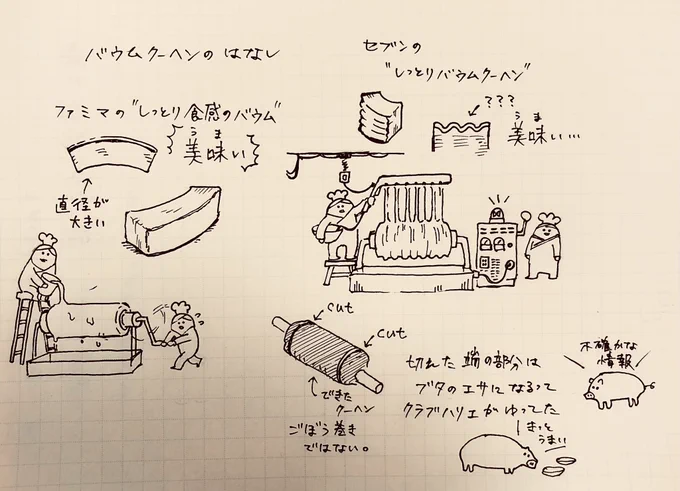 バウムクーヘンの はなし
セブンの
"しっとりバウムクーヘン"
ファミマの"しっとり食感のバウム"
うま
美味い
???
うま
美味い…
直径が
大きい
cut
cut
できた
クーヘン
ごぼう巻き
ではない。
切れた端の部分は
ブタのエサになるって
クラブハリエがゆってた
不確かな
情報
きっと
うまい